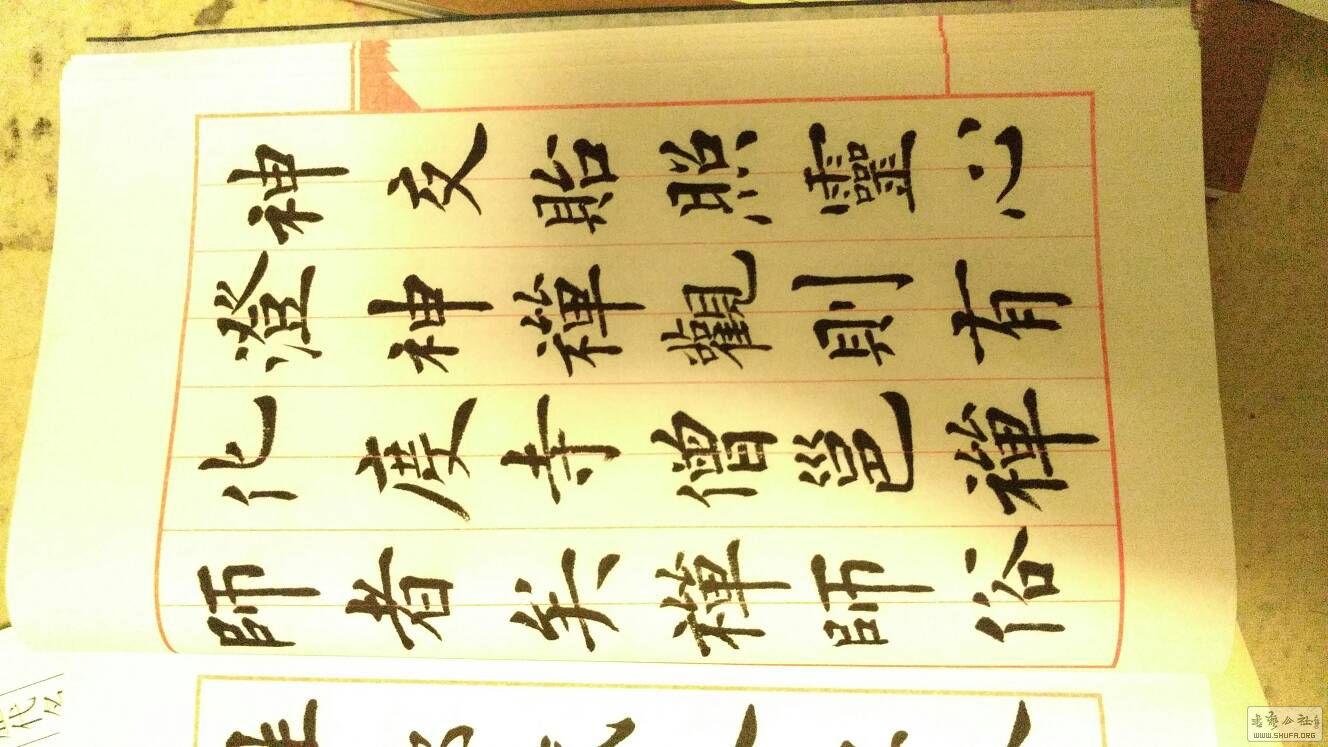 神交貽照靈心
澄神禪觀則有
化度寺僧邕禪
師者矣禪師俗
WWW.SHUFA.ORG